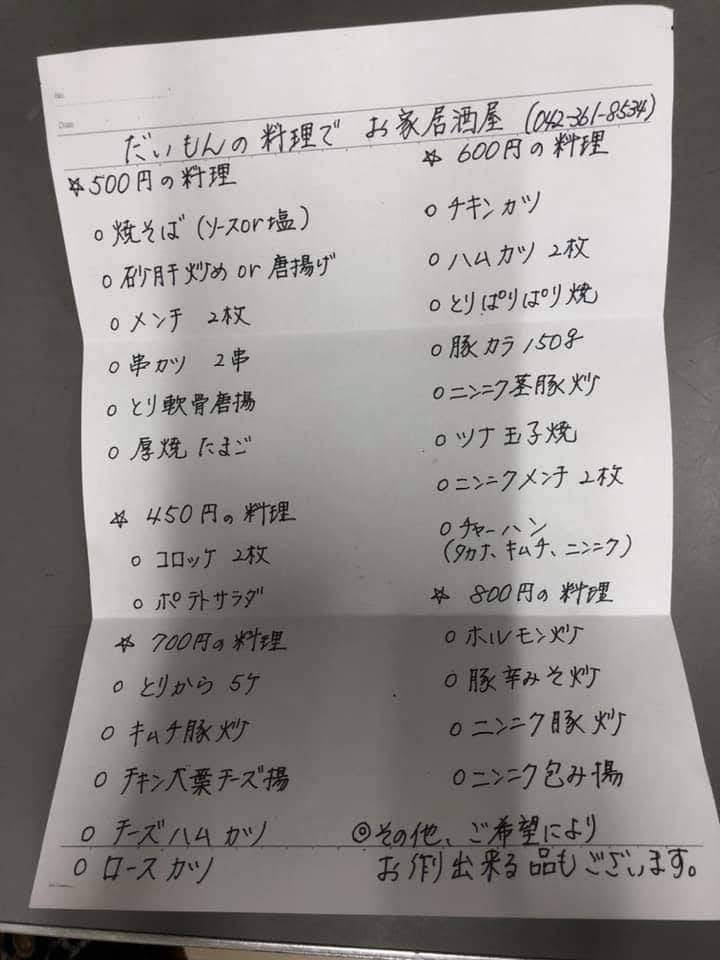 だいもんの料理で お家居酒屋 (042-361-8534)
☆500円の料理
○焼そば(ソースor塩)
○砂肝炒め or 唐揚げ
○メンチ 2枚
○串カツ 2串
○とり軟骨唐揚
○厚焼たまご
☆450円の料理
○コロッケ 2枚
○ポテトサラダ
☆700円の料理
○とりから 5ケ
○キムチ豚炒
○チキン大葉チーズ揚
○チーズハムカツ
○ロースカツ
☆600円の料理
○チキンカツ
○ハムカツ 2枚
○とりぱりぱり焼
○豚カラ150g
○ニンニク茎豚炒
○ツナ玉子焼
○ニンニクメンチ 2枚
○チャーハン
(タカナ、キムチ、ニンニク)
☆800円の料理
○ホルモン炒
○豚辛みそ炒
○ニンニク豚炒
○ニンニク包み揚
◎その他、ご希望により
お作り出来る品もございます。
No.
Date